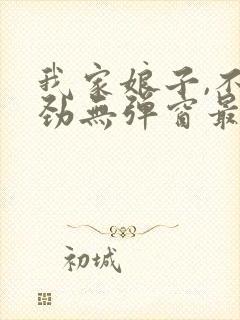 我家娘子,不
劲無弹窗最
初城